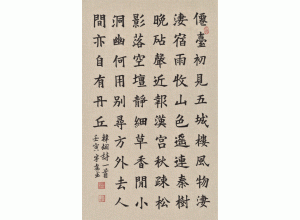 僊臺初見五城樓風物淒
淒宿雨收山色遥連秦樹
晚砧聲近報漢宮秋疎松
影落空壇靜細草香閒小
洞幽何用別尋方外去人
間亦自有丹丘
韓翃詩一首
壬寅